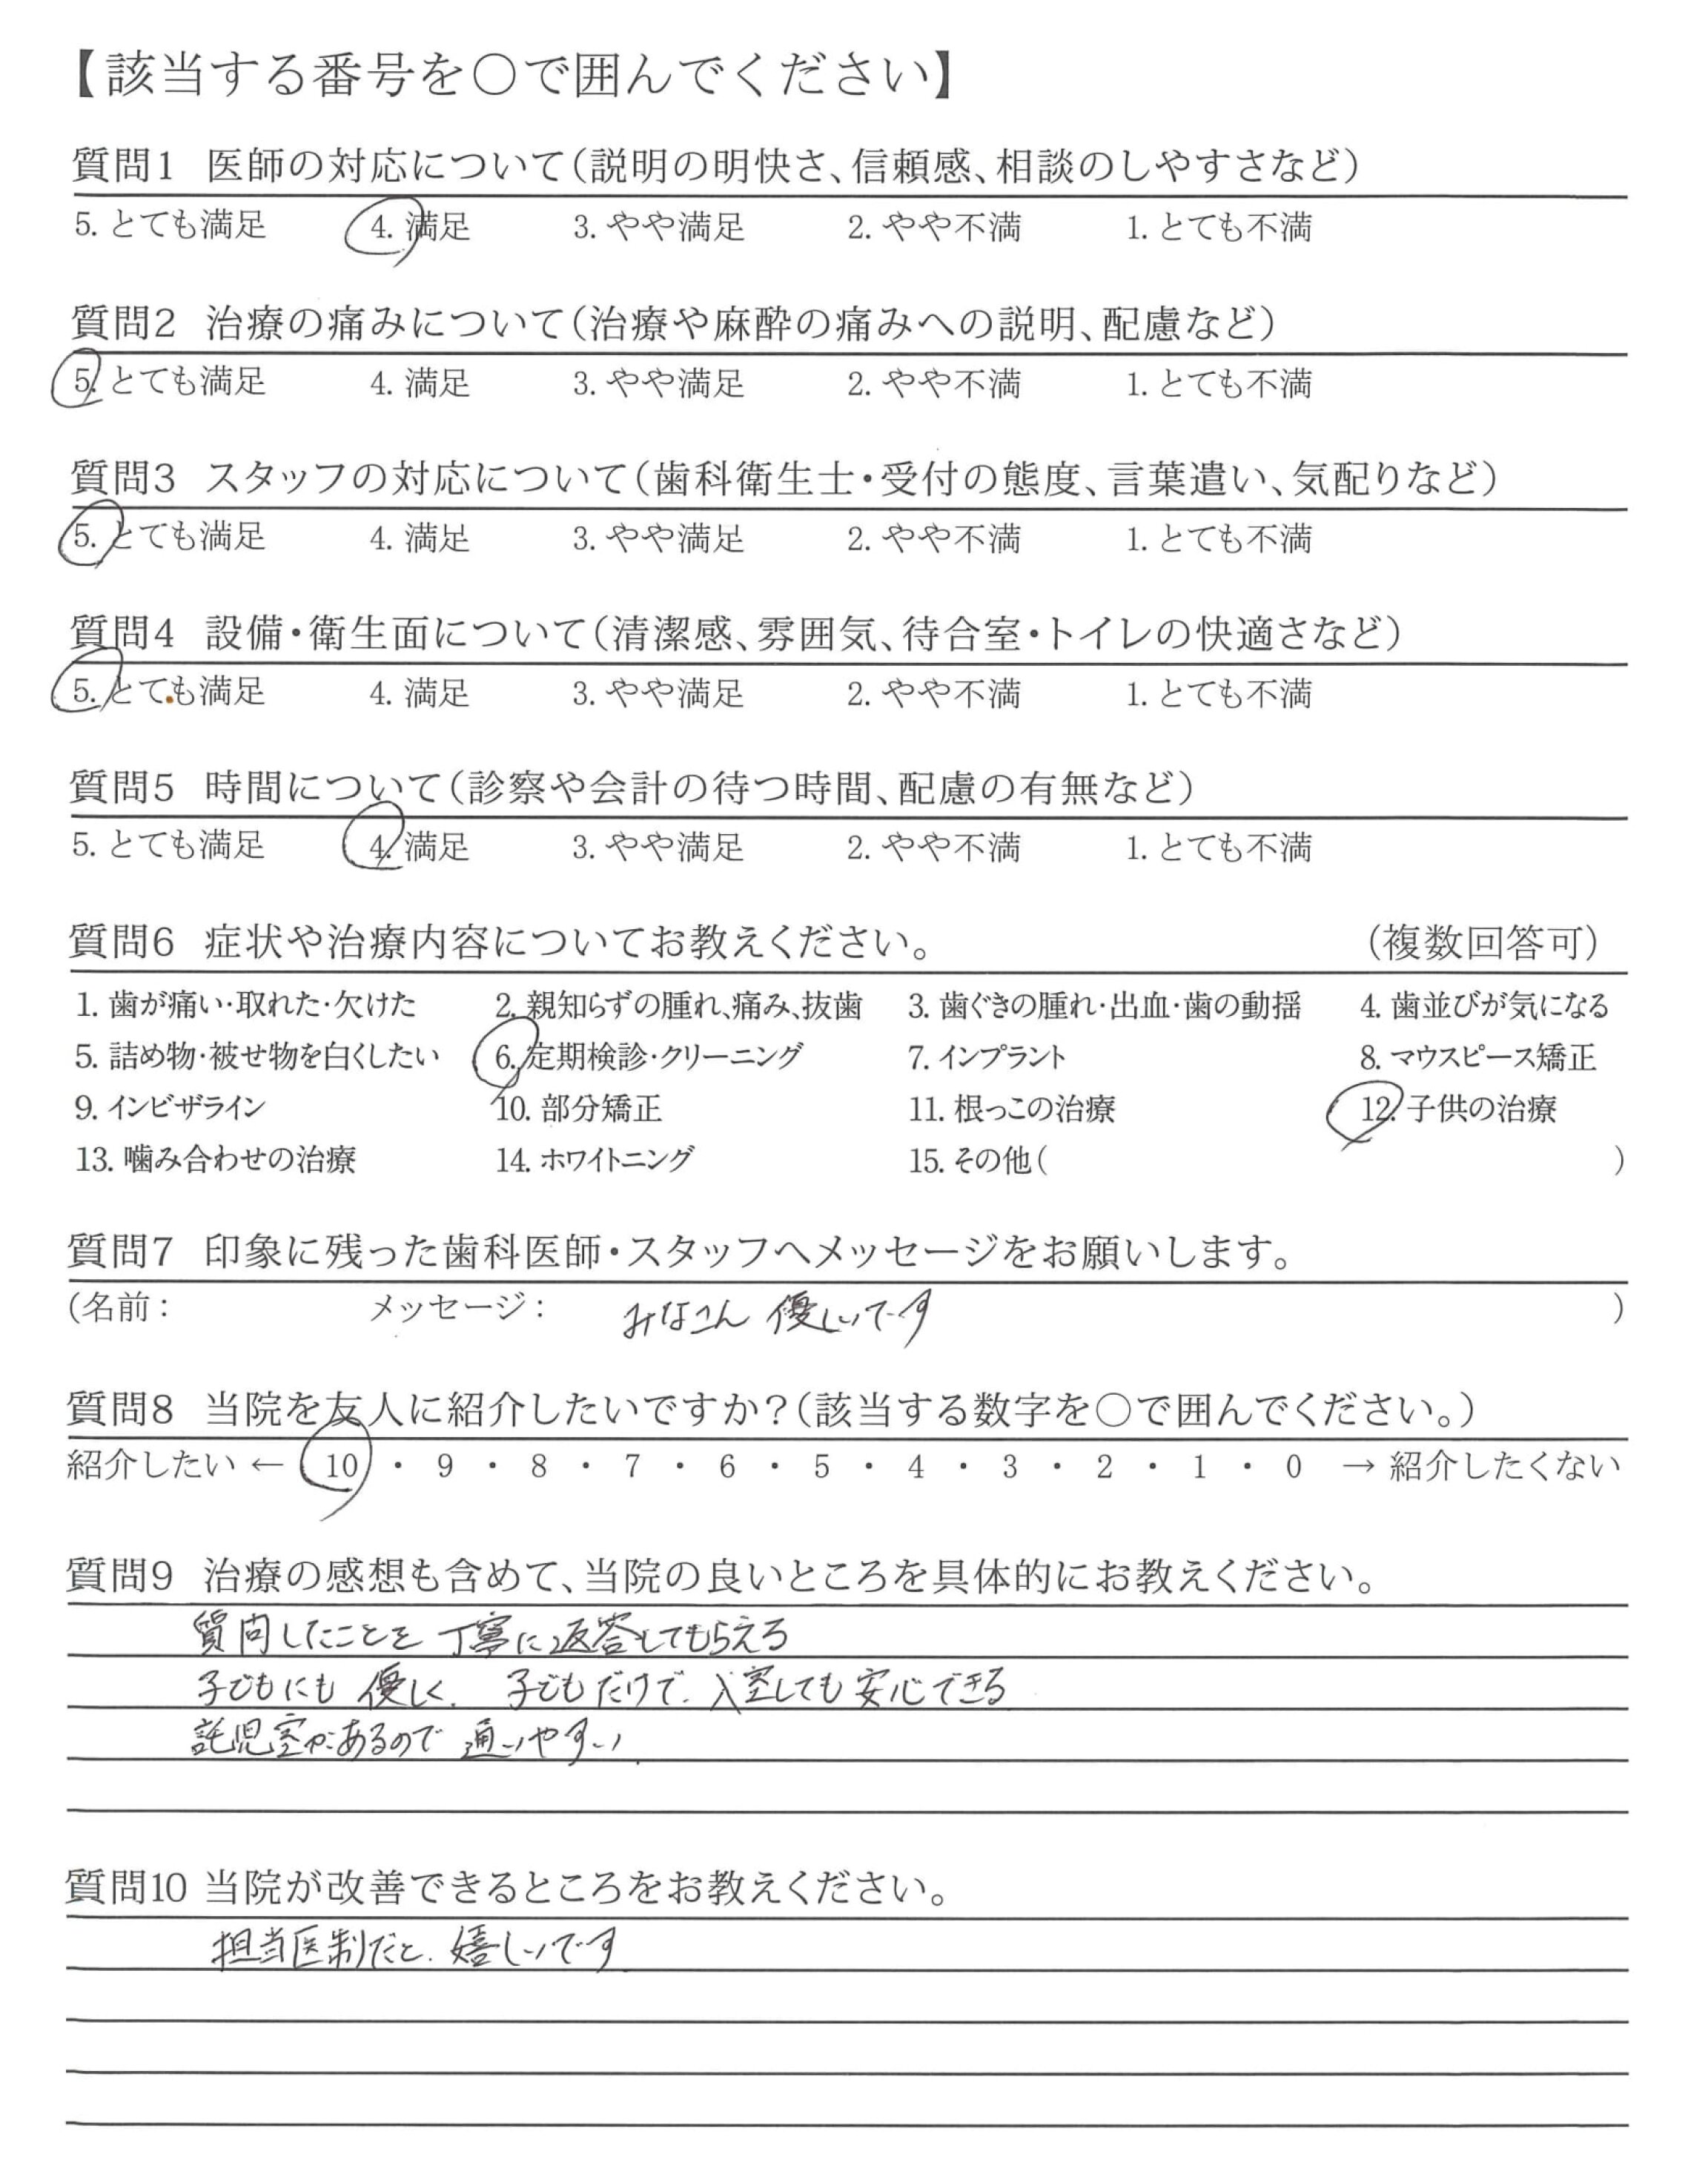 【該当する番号を〇で囲んでください】
質問1 医師の対応について(説明の明快さ、信頼感、相談のしやすさなど)
5. とても満足 4. 満足 3. やや満足 2. やや不満 1. とても不満
質問2 治療の痛みについて(治療や麻酔の痛みへの説明、配慮など)
5. とても満足 4. 満足 3. やや満足 2. やや不満 1. とても不満
質問3 スタッフの対応について(歯科衛生士・受付の態度、言葉遣い、気配りなど)
5. とても満足 4. 満足 3. やや満足 2. やや不満 1. とても不満
質問4 設備・衛生面について(清潔感、雰囲気、待合室・トイレの快適さなど)
5. とても満足 4. 満足 3. やや満足 2. やや不満 1. とても不満
質問5 時間について(診察や会計の待つ時間、配慮の有無など)
5. とても満足 4. 満足 3. やや満足 2. やや不満 1. とても不満
質問6 症状や治療内容についてお教えください。 (複数回答可)
1. 歯が痛い・取れた・欠けた 2. 親知らずの腫れ、痛み、抜歯 3. 歯ぐきの腫れ・出血・歯の動揺 4. 歯並びが気になる
5. 詰め物・被せ物を白くしたい 6. 定期検診・クリーニング 7. インプラント 8. マウスピース矯正
9. インビザライン 10. 部分矯正 11. 根っこの治療 12. 子供の治療
13. 噛み合わせの治療 14. ホワイトニング 15. その他( )
質問7 印象に残った歯科医師・スタッフへメッセージをお願いします。
(名前: メッセージ: みなさん 優しいです )
質問8 当院を友人に紹介したいですか?(該当する数字を〇で囲んでください。)
紹介したい ← 10 ・ 9 ・ 8 ・ 7 ・ 6 ・ 5 ・ 4 ・ 3 ・ 2 ・ 1 ・ 0 → 紹介したくない
質問9 治療の感想も含めて、当院の良いところを具体的にお教えください。
質問したことを 丁寧に返答してもらえる
子どもにも 優しく、 子どもだけで 入室しても 安心できる
託児室があるので 通いやすい
質問10 当院が改善できるところをお教えください。
担当医制だと、嬉しいです